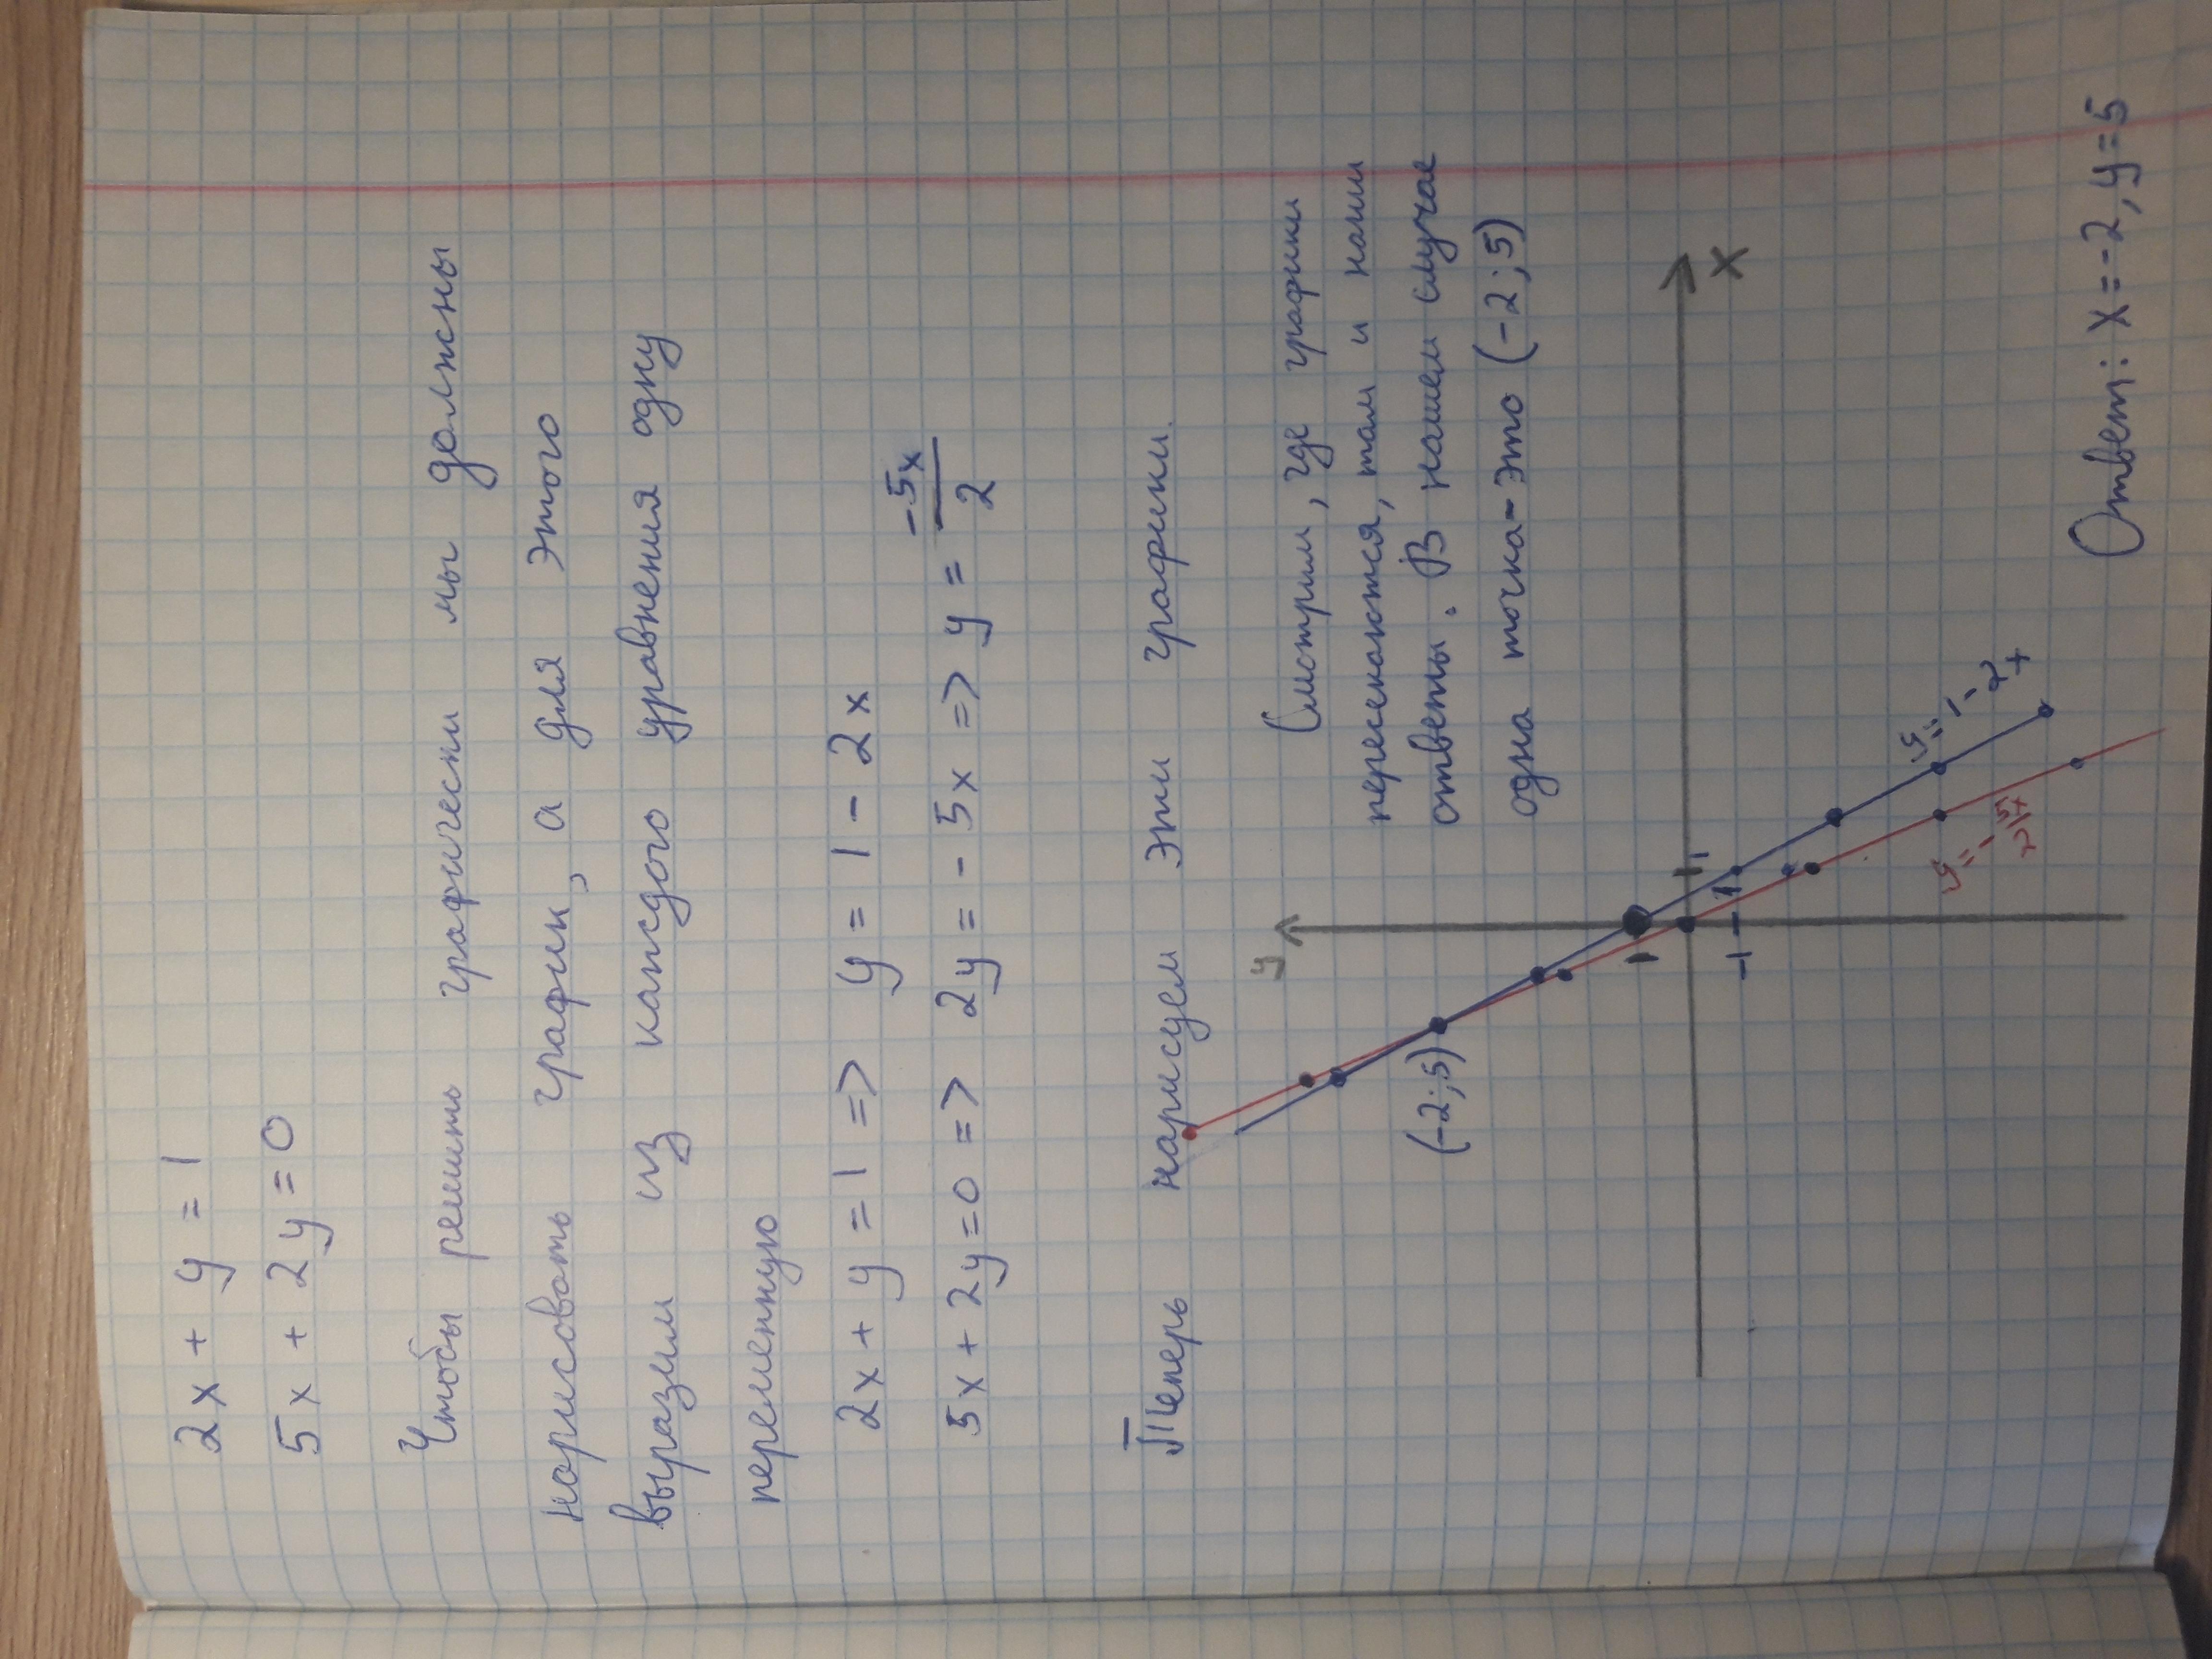 2x + y = 1
5x + 2y = 0
Чтобы решить графически мы должны
нарисовать график, а для этого
выразим из каждого уравнения одну
переменную
2x + y = 1 => y = 1 - 2x
5x + 2y = 0 => 2y = - 5x => y = -5x/2
Теперь нарисуем эти графики.
Смотрим, где графики
пересекаются, там и наши
ответы. В нашем случае
одна точка - это (-2; 5)
y
x
(-2; 5)
1
1
-1
y = 1 - 2x
y = - 5x/2
Ответ: x = -2, y = 5